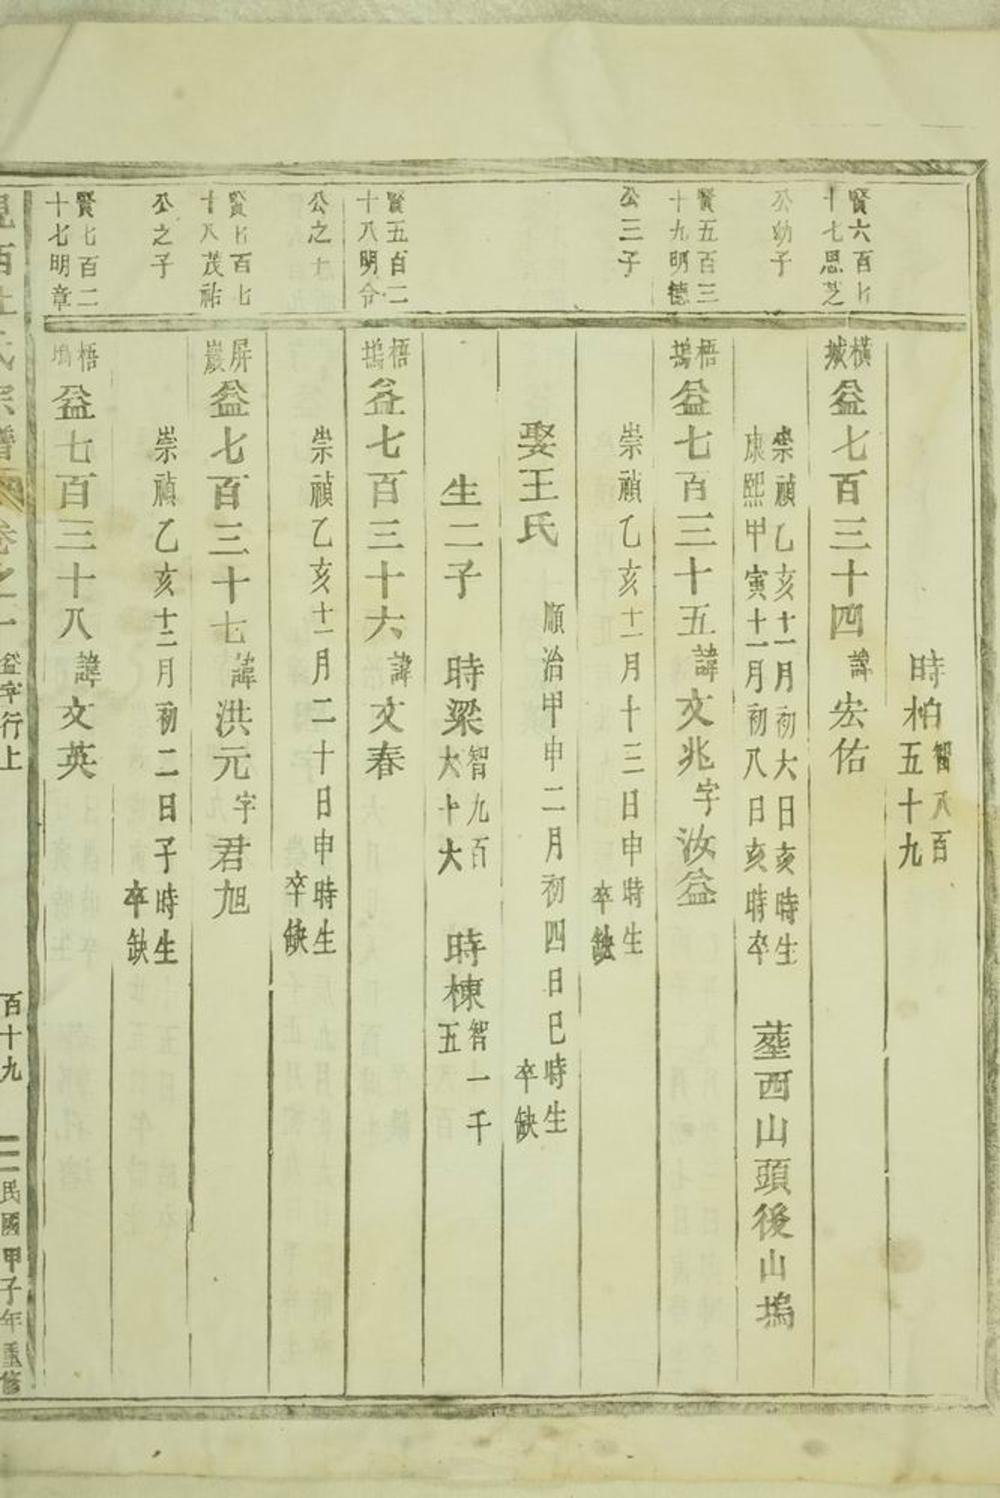 時柏智八百五十九
賢六百七十七思芝公幼子
橫城益七百三十四諱宏佑
崇禎乙亥十一月初六日亥時生
康熙甲寅十一月初八日亥時卒
塟西山頭後山塢
賢五百三十九明德公三子
梧塢益七百三十五諱文兆字汝益
崇禎乙亥十一月十三日申時生
卒缺
娶王氏
順治甲申二月初四日巳時生
卒缺
生二子
時梁智九百六十六
時棟智一千五
賢五百二十八明令公之子
梧塢益七百三十六諱文春
崇禎乙亥十一月二十日申時生
卒缺
賢七百七十八茂祐公之子
屏巖益七百三十七諱洪元字君旭
崇禎乙亥十二月初二日子時生
卒缺
賢七百二十七明章
梧塢益七百三十八諱文英
氏宗譜
卷之一
益字行上
百十九
民國甲子年重修